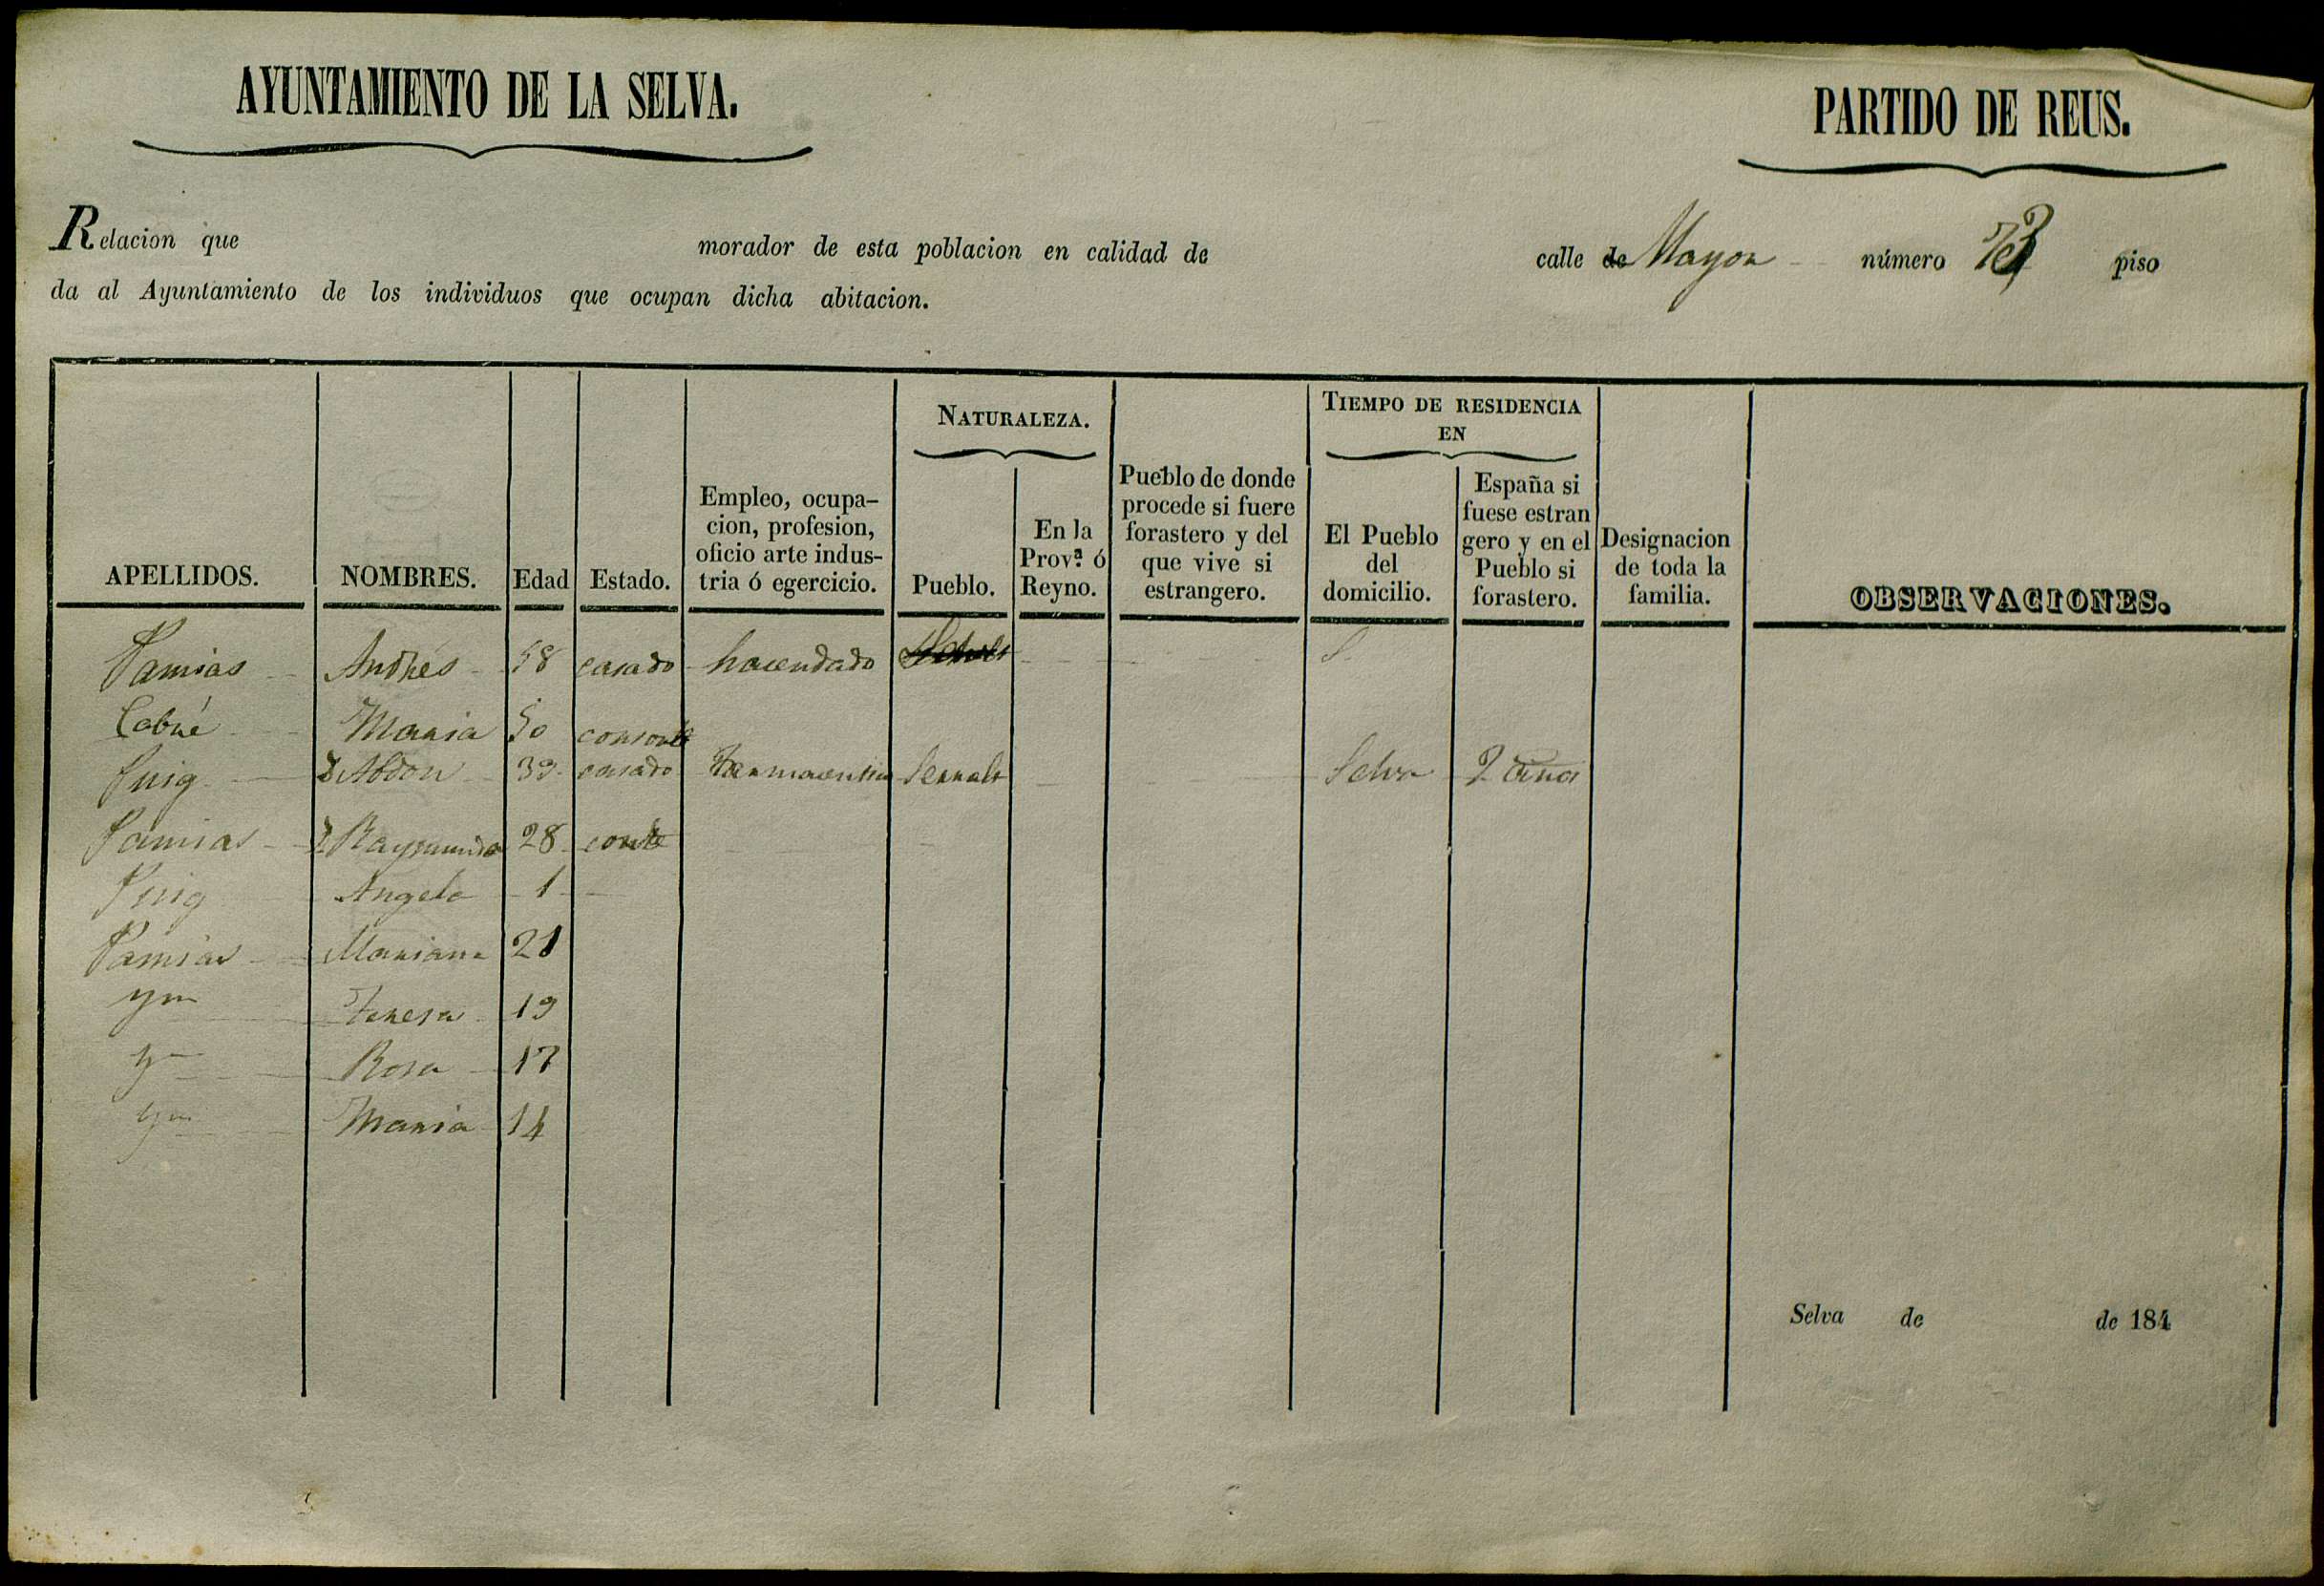 AYUNTAMIENTO DE LA SELVA.
PARTIDO DE REUS.
Relacion que morador de esta poblacion en calidad de calle de Mayor número piso
da al Ayuntamiento de los individuos que ocupan dicha abitacion.
APELLIDOS. NOMBRES. Edad Estado. Empleo, ocupa-
cion, profesion,
oficio arte indus-
tria ó egercicio.
NATURALEZA.
Pueblo. En la
Prov.ª ó
Reyno.
Pueblo de donde
procede si fuere
forastero y del
que vive si
estrangero.
TIEMPO DE RESIDENCIA
EN
El Pueblo
del
domicilio.
España si
fuese estran
gero y en el
Pueblo si
forastero.
Designacion
de toda la
familia.
OBSERVACIONES.
Pamias Andres 58 casado hacendado S.
Cabré Maria 50 consorte
Puig Dn Abdon 39 casado Sarralt Selva 2 años
Pamias Da Raymunda 28 conte
Puig Angela 1
Pamias Mariana 21
Ym Teresa 19
Ym Rosa 17
Ym Maria 14
Selva de de 184